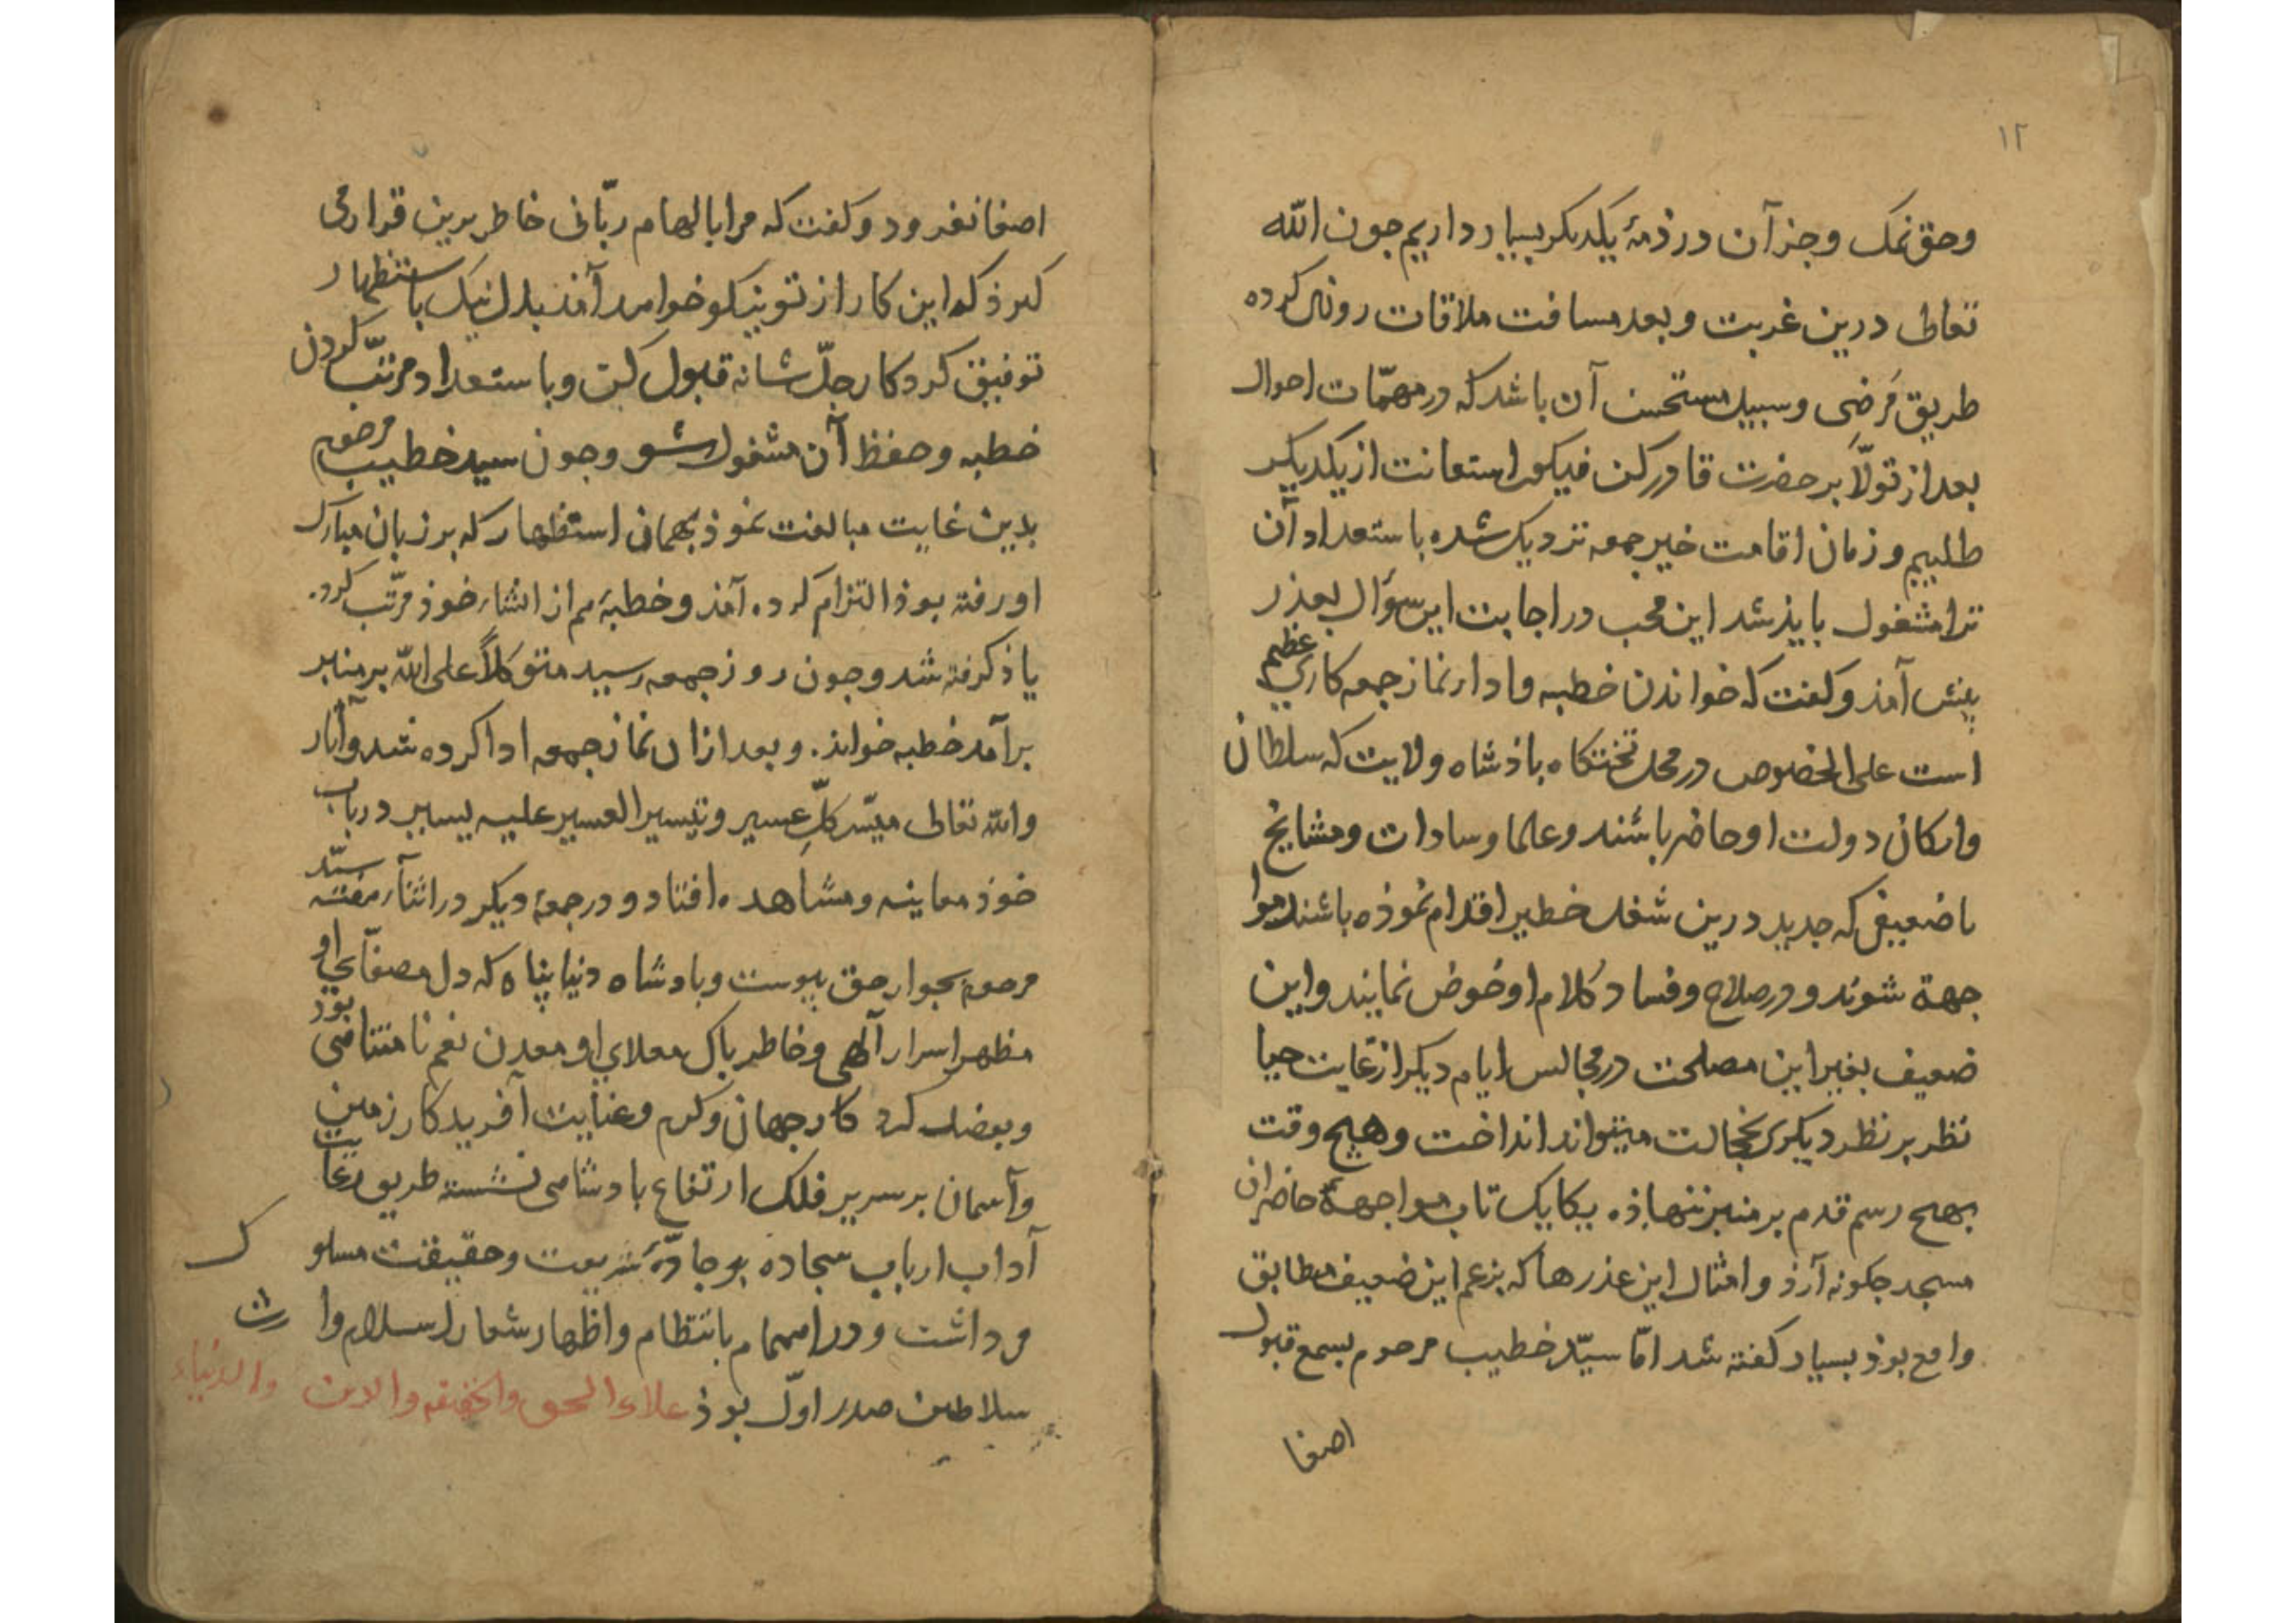 ۱۲
وحق نمک وجز آن در ذمهٔ یکدیکر بسیار داریم جون الله
تعالی درین غربت و بعد مسافت ملاقات روزی کرده
طریق مَرضی وسبیل مستحسن آن باشد که در مهمّات احوال
بعد از تولّا بر حضرت قادر کن فیکون استعانت از یکدیکر
طلبیم و زمان اقامت خیر جمعه نزدیک شده باستعداد آن
ترا مشغول باید شد این محب در اجابت این سؤال بعذر
پیش آمذ و کفت که خواندن خطبه و ادار نماز جمعه کاری عظیم
است علی الخصوص در محل تختکاه باذشاه ولایت که سلطان
وارکان دولت او حاضر باشند وعلما وسادات ومشایخ
با ضعیفی که جدید درین شغل خطیر اقدام نموذه باشند موا
جهة شوند و در صلاح وفساد کلام او خوض نمایند واین
ضعیف بغیر این مصلحت در مجالس ایام دیکر از غایت حیا
نظر بر نظر دیکری بخجالت میتواند انداخت وهیچ وقت
بهیچ رسم قدم بر منبر ننهاذه یکایک تاب مواجههٔ حاضران
مسجد جکونه آرذ و امثال این عذرها که بزعم این ضعیف مطابق
واقع بوذ بسیار کفته شد امّا سیّد خطیب مرحوم بسمع قبول
اصغا
اصغا نفرمود و کفت که مرا بالهام ربّانی خاطر برین قرار می
کیرذ که این کار از تو نیکو خواهد آمذ بدل نیک باستظهار
توفیق کردکار جلّ شانه قبول کن و باستعداد مرتّب کردن
خطبه و حفظ آن مشغول شو وجون سید خطیب مرحوم
بدین غایت مبالغت نموذ بهمان استظهار که بر زبان مبارک
او رفته بوذ التزام کرده آمذ و خطبهٔ هم از انشاء خوذ مرتّب کرد.
یاذ کرفته شد وجون روز جمعه رسید متوکّلاً علی الله بر منبر
برآمد خطبه خواند. و بعد ازان نماز جمعه ادا کرده شد وآثار
والله تعالی میسّر کلّ عسیر وتیسیر العسیر علیه یسیر درباب
خوذ معاینه ومشاهده افتاد و در جمعهٔ دیکر در اثناء هفته سیّد
مرحوم بجوار حق پیوست و بادشاه دنیا پناه که دل مصفّای او
مظهر اسرار آلهی وخاطر پاک معلای او معدن نعم نامتناهی بوذ
وبفضل کردکار جهان وکرم وعنایت آفریدکار زمین
وآسمان بر سریر فلک ارتفاع بادشاهی نشسته طریق رعایت
آداب ارباب سجاده بر جادّهٔ شریعت وحقیقت مسلوک
می داشت و در اهتمام بانتظام واظهار شعار اسلام وارث
سلاطین صدر اوّل بوذ علاء الحق والحقیقه والدین والدنیاء